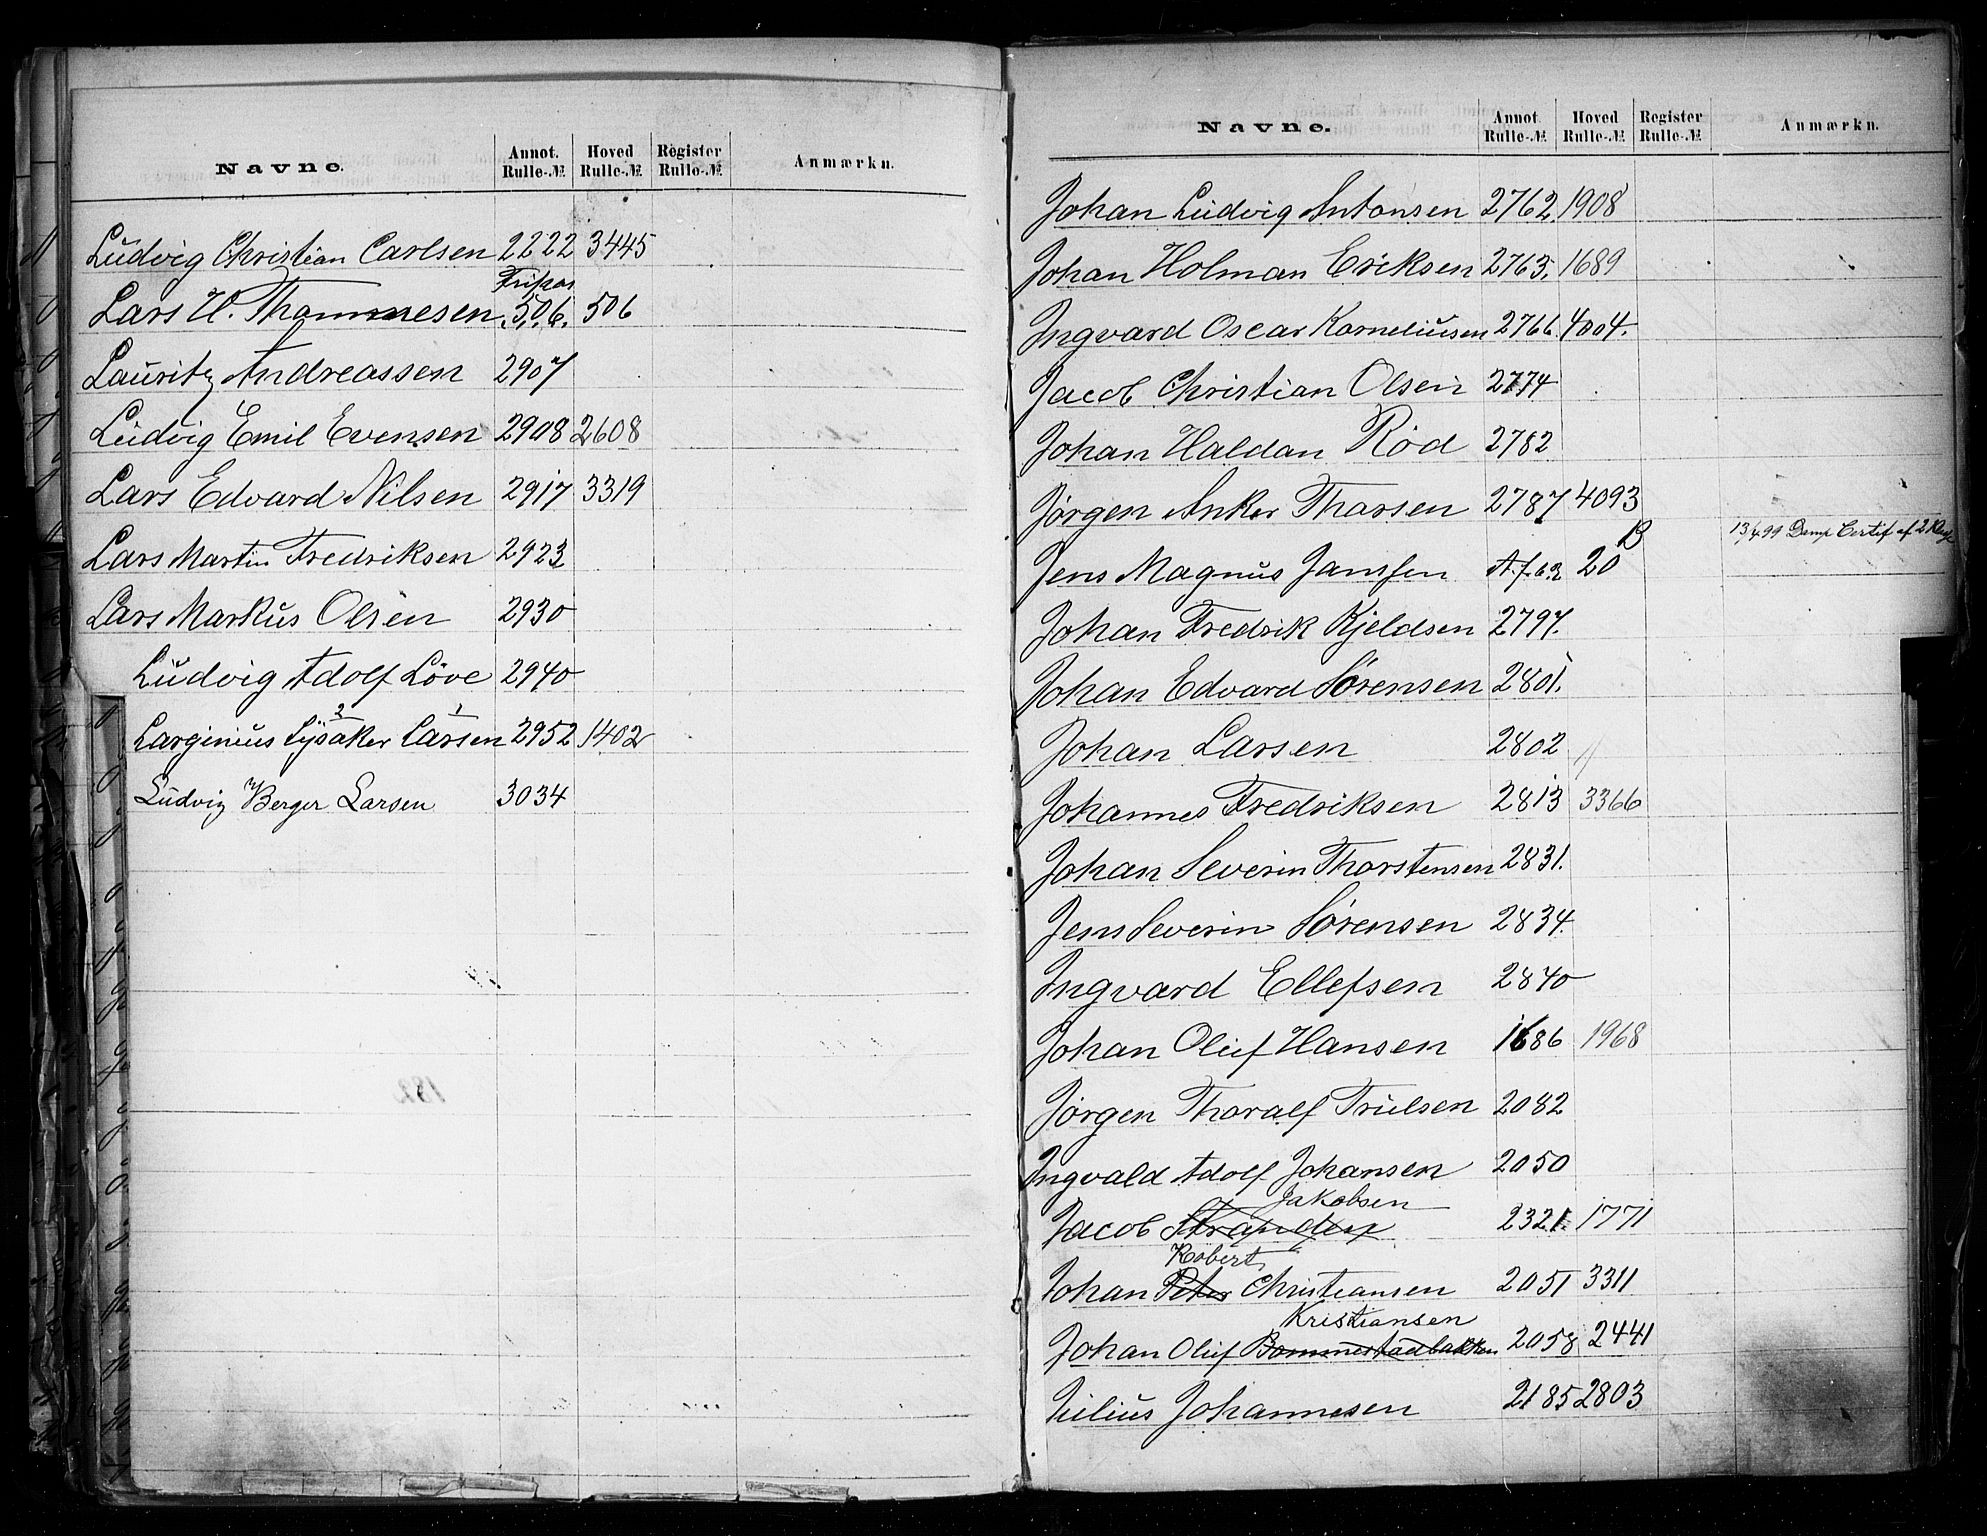 Navne. Annot. Rulle-№ Hoved Rulle-№ Register Rulle-№ Anmærkn.
Ludvig Christian Carlsen 2222 3445
Lars H. Thommesen 506. 506
Lauritz Andreassen 2907
Ludvig Emil Evensen 2908 2608
Lars Edvard Nilsen 2917 3319
Lars Martin Fredriksen 2923
Lars Markus Olsen 2930
Ludvig Adolf Löve 2940
2 1
Larginius Lysaker Larsen 2952 1402
Ludvig Berger Larsen 3034
Navne. Annot. Rulle-№ Hoved Rulle-№ Register Rulle-№ Anmærkn.
Johan Ludvig Antonsen 2762 1908
Johan Holman Eriksen 2763. 1689
Ingvard Oscar Korneliusen 2766 4004.
Jacob Christian Olsen 2774
Johan Haldan Rød 2782
Jørgen Anker Thorsen 2787 4093
Jens Magnus Janssen 20 B 13/4 99 Damp Certif af 2 Kl
Johan Fredrik Kjeldsen 2797.
Johan Edvard Sørensen 2801.
Johan Larsen 2802
Johannes Fredriksen 2813 3366
Johan Severin Thorstensen 2831.
Jens Severin Sørensen 2834.
Ingvard Ellefsen 2840
Johan Oluf Hansen 1686 1968
Jørgen Thoralf Trulsen 2082
Ingvald Adolf Johansen 2050
Jakobsen
Jacob Stranden 2321. 1771
Robert
Johan Peter Christiansen 2051 3311
Kristiansen
Johan Oluf Bommestadbakken 2058 2441
Julius Johannesen 2185 2803